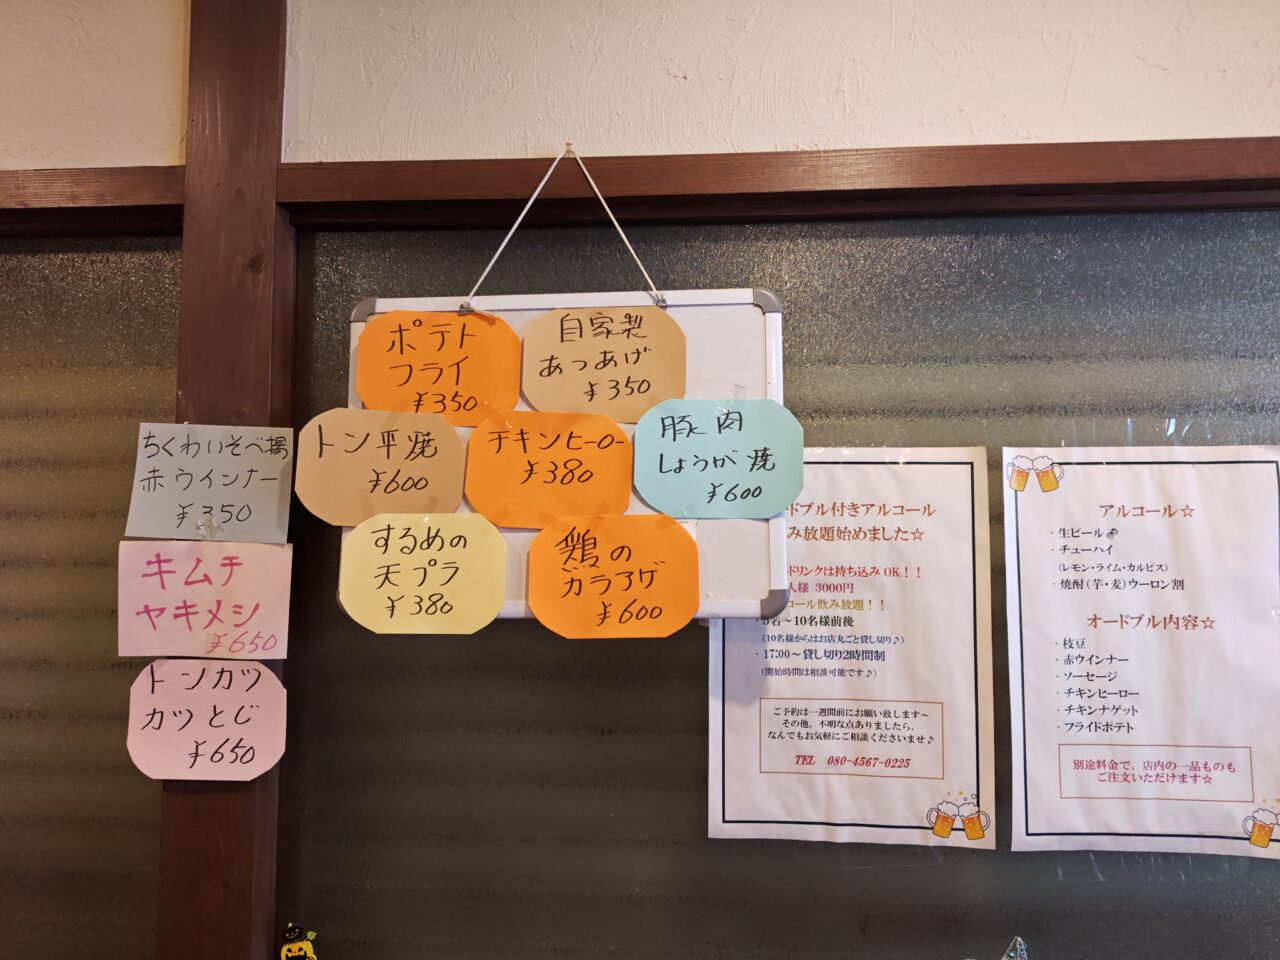 ポテト
フライ
¥350
自家製
あつあげ
¥350
トン平焼
¥600
チキンヒーロー
¥380
豚肉
しょうが焼
¥600
するめの
天プラ
¥380
鶏の
カラアゲ
¥600
ちくわいそべ揚
赤ウインナー
¥350
キムチ
ヤキメシ
¥650
トンカツ
カツとじ
¥650
ドブル付きアルコール
み放題始めました☆
ドリンクは持ち込みOK！！
人様 3000円
コール飲み放題！！
名～10名様前後
(10名様からはお店丸ごと貸し切り♪)
・17:00～貸し切り2時間制
(開始時間は相談可能です♪)
ご予約は一週間前にお願い致します～
その他、不明な点ありましたら、
なんでもお気軽にご相談くださいませ♪
TEL 080-4567-0225
アルコール☆
・生ビール
・チューハイ
(レモン・ライム・カルピス)
・焼酎(芋・麦)ウーロン割
オードブル内容☆
・枝豆
・赤ウインナー
・ソーセージ
・チキンヒーロー
・チキンナゲット
・フライドポテト
別途料金で、店内の一品ものも
ご注文いただけます☆